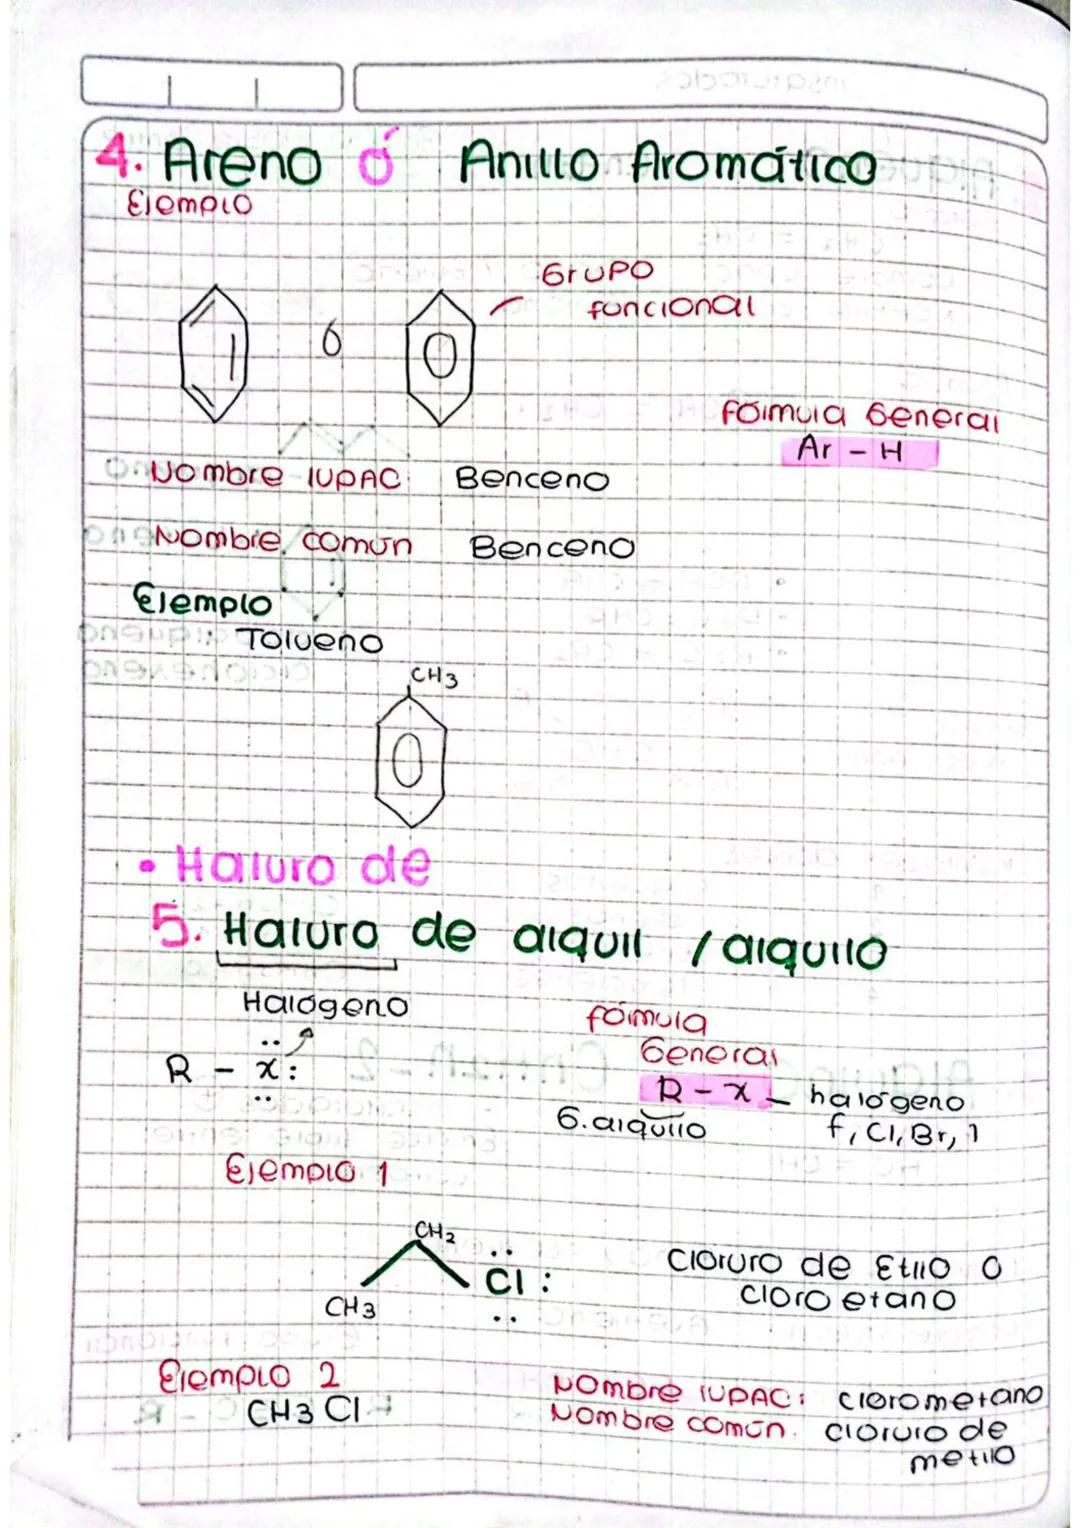 4. Areno ó Anillo Aromático
Ejemplo
Grupo
funcional
ó
fórmula General
Ar - H
Nombre IUPAC: Benceno
Nombre común Benceno
Ejemplo
: Tolueno
CH3
• Haluro de
5. Haluro de alquil / alquilo
Halógeno
R - x:
fórmula
General
R - x - halógeno
G.alquilo f, Cl, Br, I
Ejemplo 1
CH2
Cl:
CH3
Cloruro de Etilo o
cloro etano
Ejemplo 2
CH3 Cl
Nombre IUPAC: clorometano
Nombre común. cloruro de
metilo